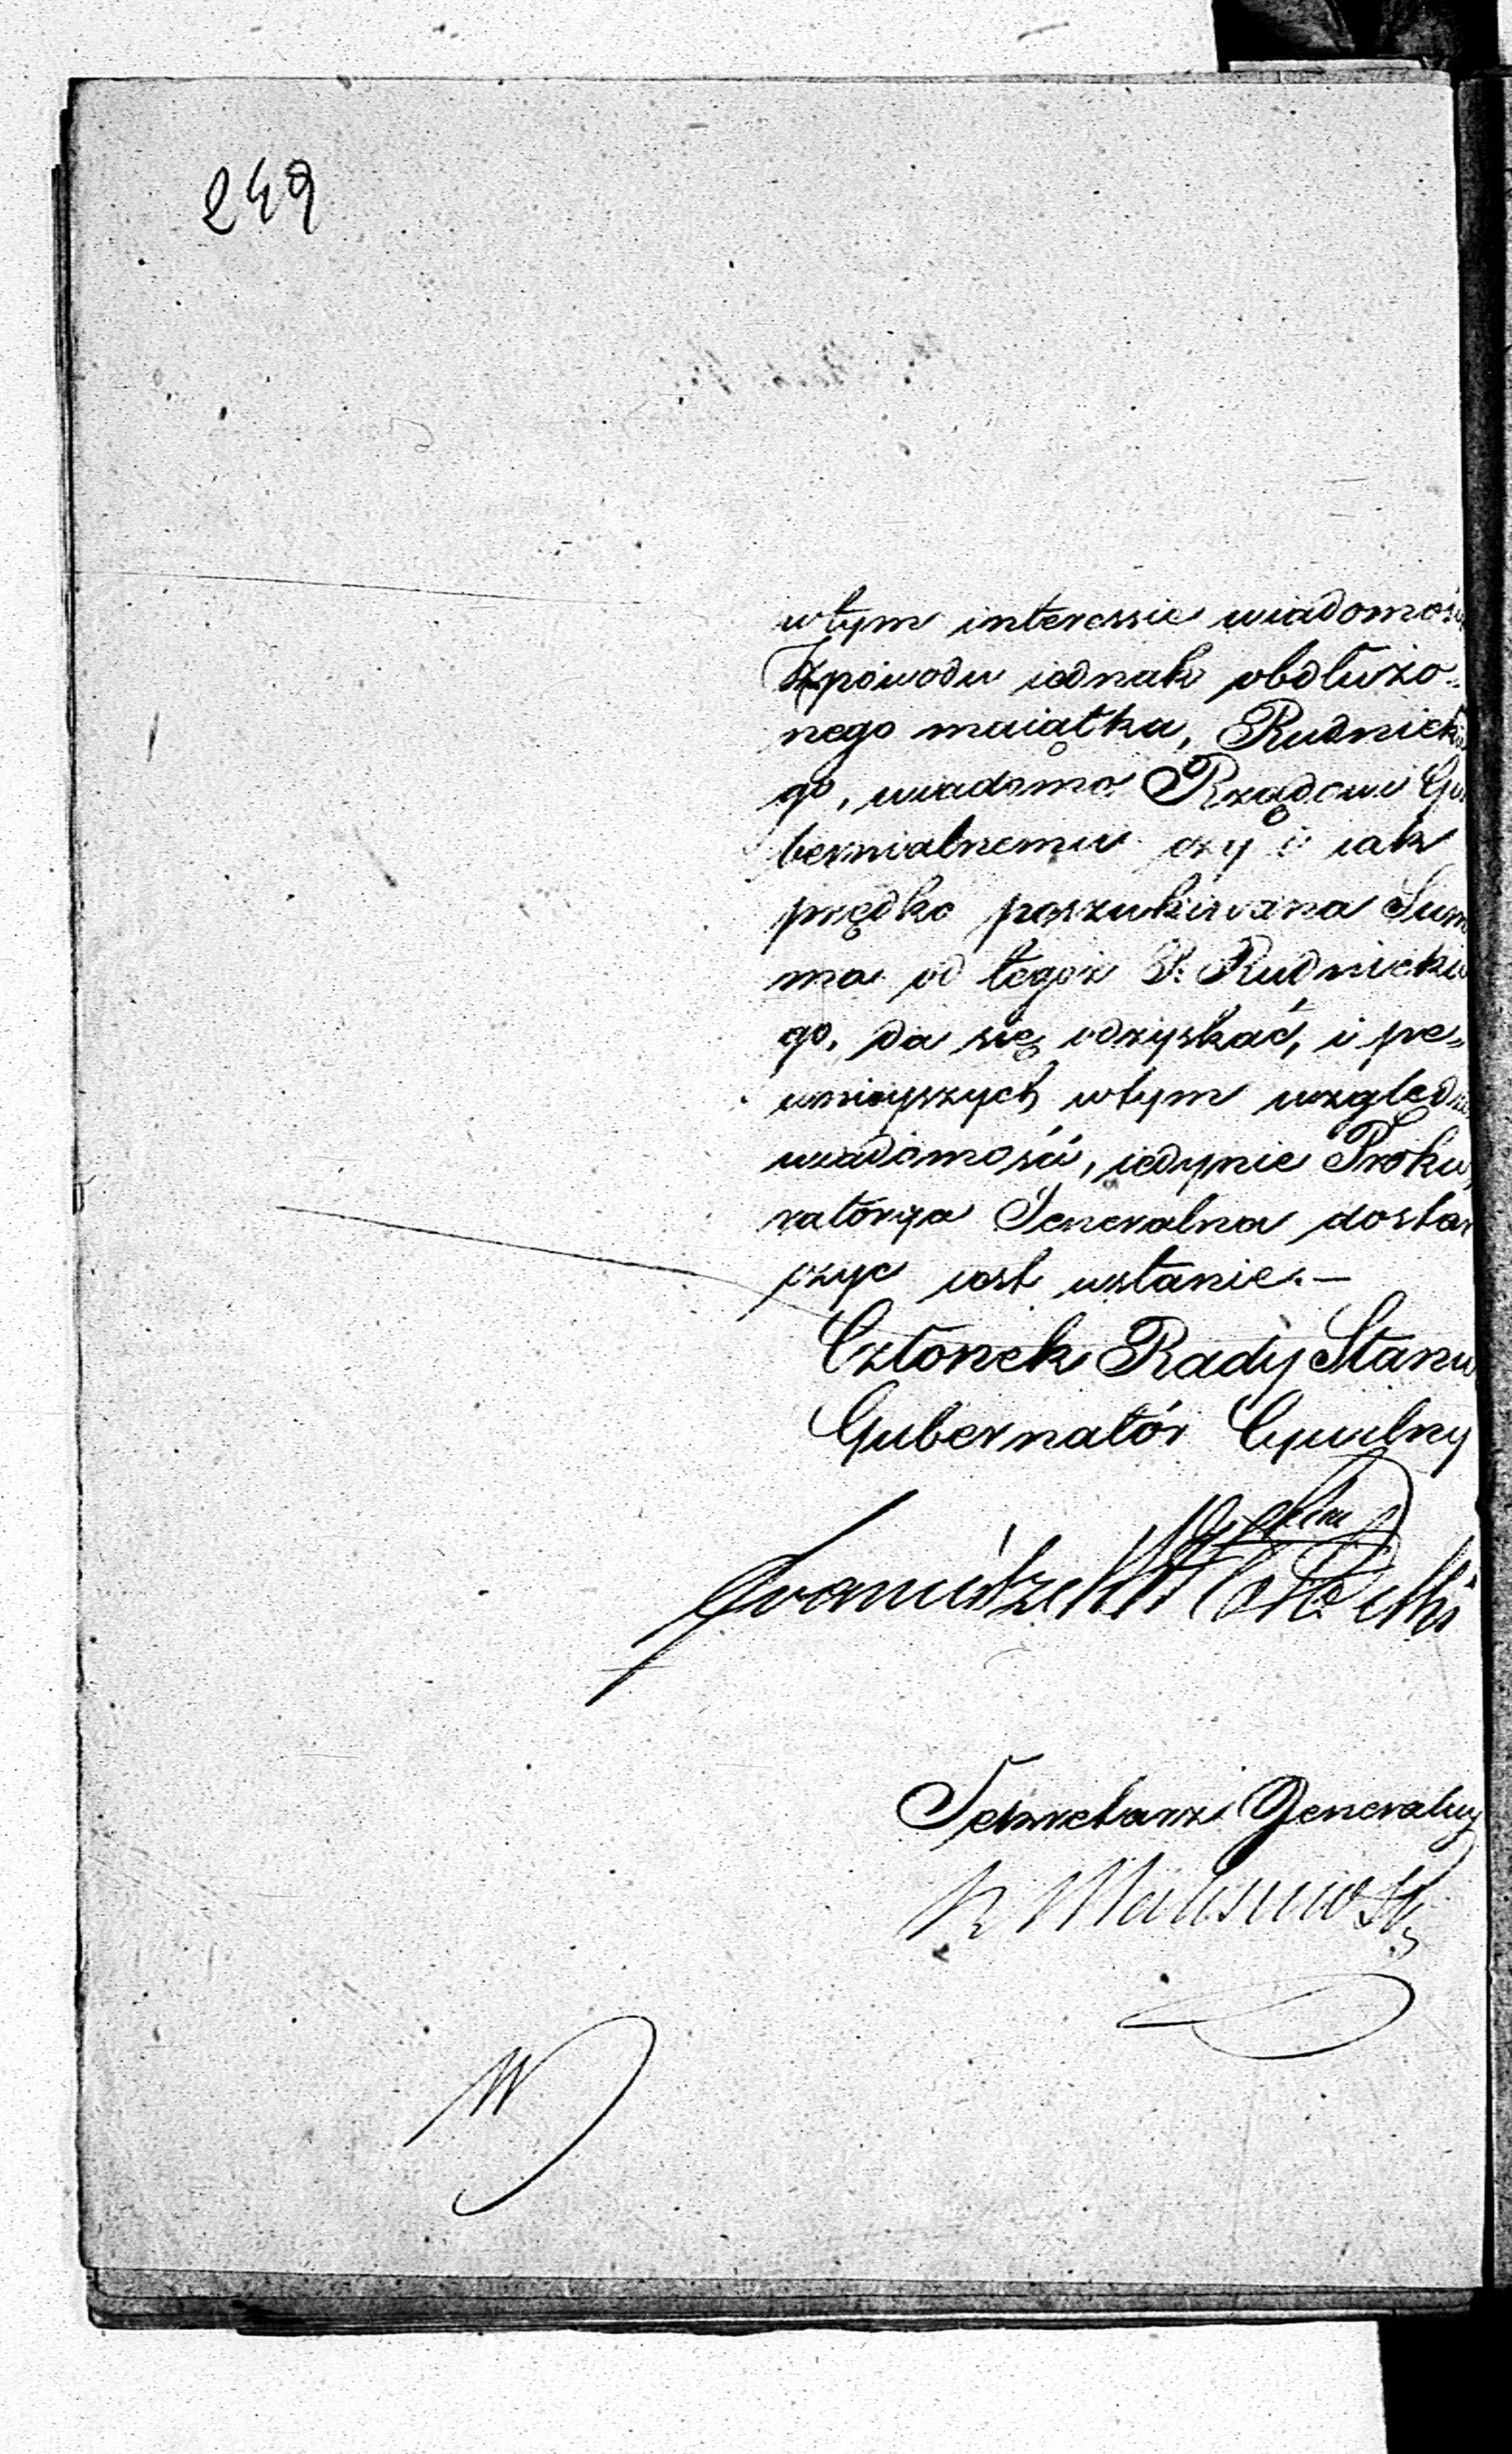 249
wtym interessie wiadomość
Zpowodu iednak obdłużo-
nego maiątku, Rudnickie
go, wiadomo Rządowi Gu
bernialnemu czy i iak
prędko poszukiwana Sum
ma od tegoż P. Rudnickie
go, da się odzyskać, i pe-
wnieyszych wtym względzie
wiadomości, iedynie Proku
ratorya Jeneralna dostar
czyc iest wstanie.—
Członek Rady Stanu
Gubernatór Cywilny
Franciszek
Sekretarz Generalny
Malinowski